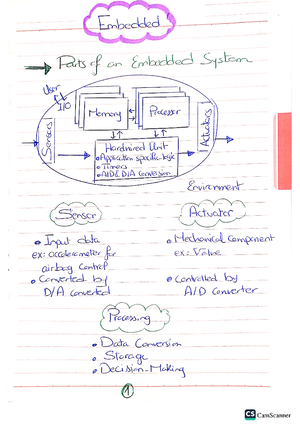 Embedded
Parts of an Embedded System
User
I/O
Sensors
Memory
Processor
Actuators
Hardwired Unit
• Application specific logic
• Timers
• A/D & D/A conversion
Environment
Sensor
• Input data
ex: accelerometer for
airbag control
• Converted by
D/A converted
Actuator
• Mechanical Component
ex: Valve
• Controlled by
A/D Converter
Processing
• Data Conversion
• Storage
• Decision-Making
1
CS CamScanner